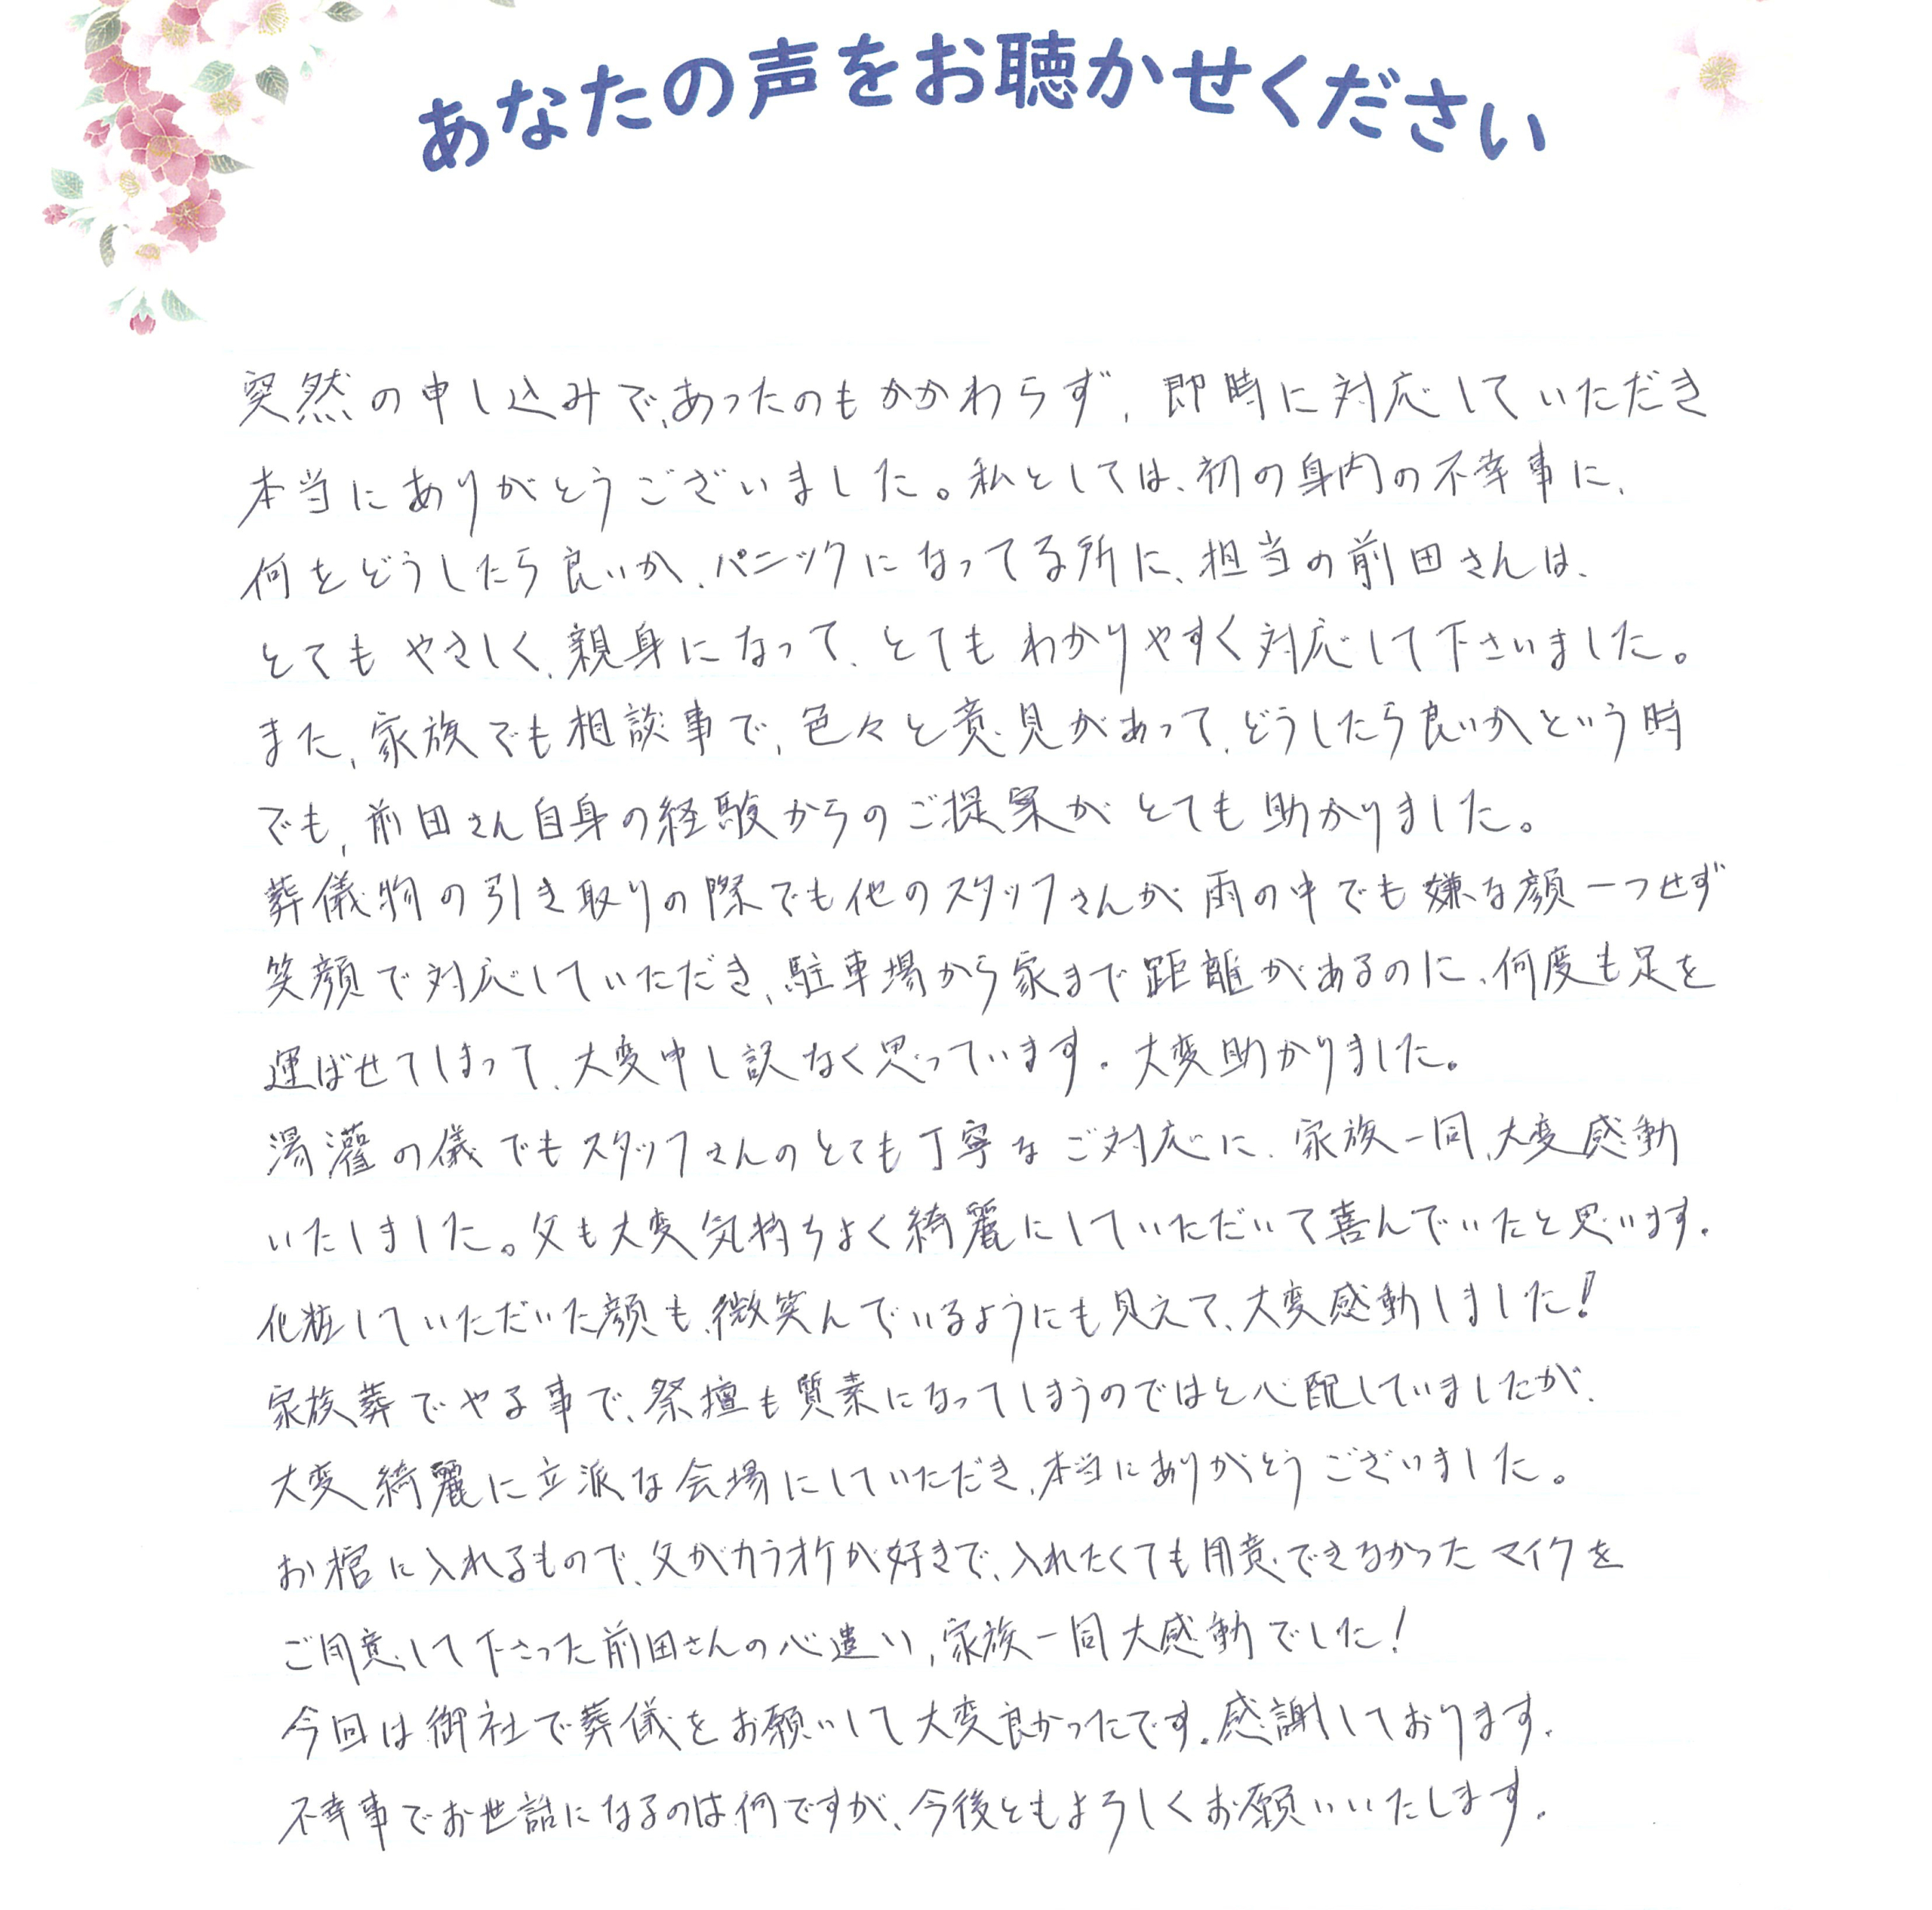 あなたの声をお聴かせください
突然の申し込みで、あったのもかかわらず、即時に対応していただき
本当にありがとうございました。私としては、初の身内の不幸事に、
何をどうしたら良いか、パニックになってる所に、担当の前田さんは、
とてもやさしく、親身になって、とてもわかりやすく対応して下さいました。
また、家族でも相談事で、色々と意見があって、どうしたら良いかという時
でも、前田さん自身の経験からのご提案がとても助かりました。
葬儀物の引き取りの際でも他のスタッフさんが雨の中でも嫌な顔一つせず
笑顔で対応していただき、駐車場から家まで距離があるのに、何度も足を
運ばせてしまって、大変申し訳なく思っています。大変助かりました。
湯灌の儀でもスタッフさんのとても丁寧なご対応に、家族一同、大変感動
いたしました。父も大変気持ちよく綺麗にしていただいて喜んでいたと思います。
化粧していただいた顔も、微笑んでいるようにも見えて、大変感動しました!
家族葬でやる事で、祭壇も質素になってしまうのではと心配していましたが、
大変綺麗に立派な会場にしていただき、本当にありがとうございました。
お棺に入れるもので、父がカラオケが好きで、入れたくても用意できなかったマイクを
ご用意して下さった前田さんの心遣い、家族一同大感動でした!
今回は御社で葬儀をお願いして大変良かったです。感謝しております。
不幸事でお世話になるのは何ですが、今後ともよろしくお願いいたします。